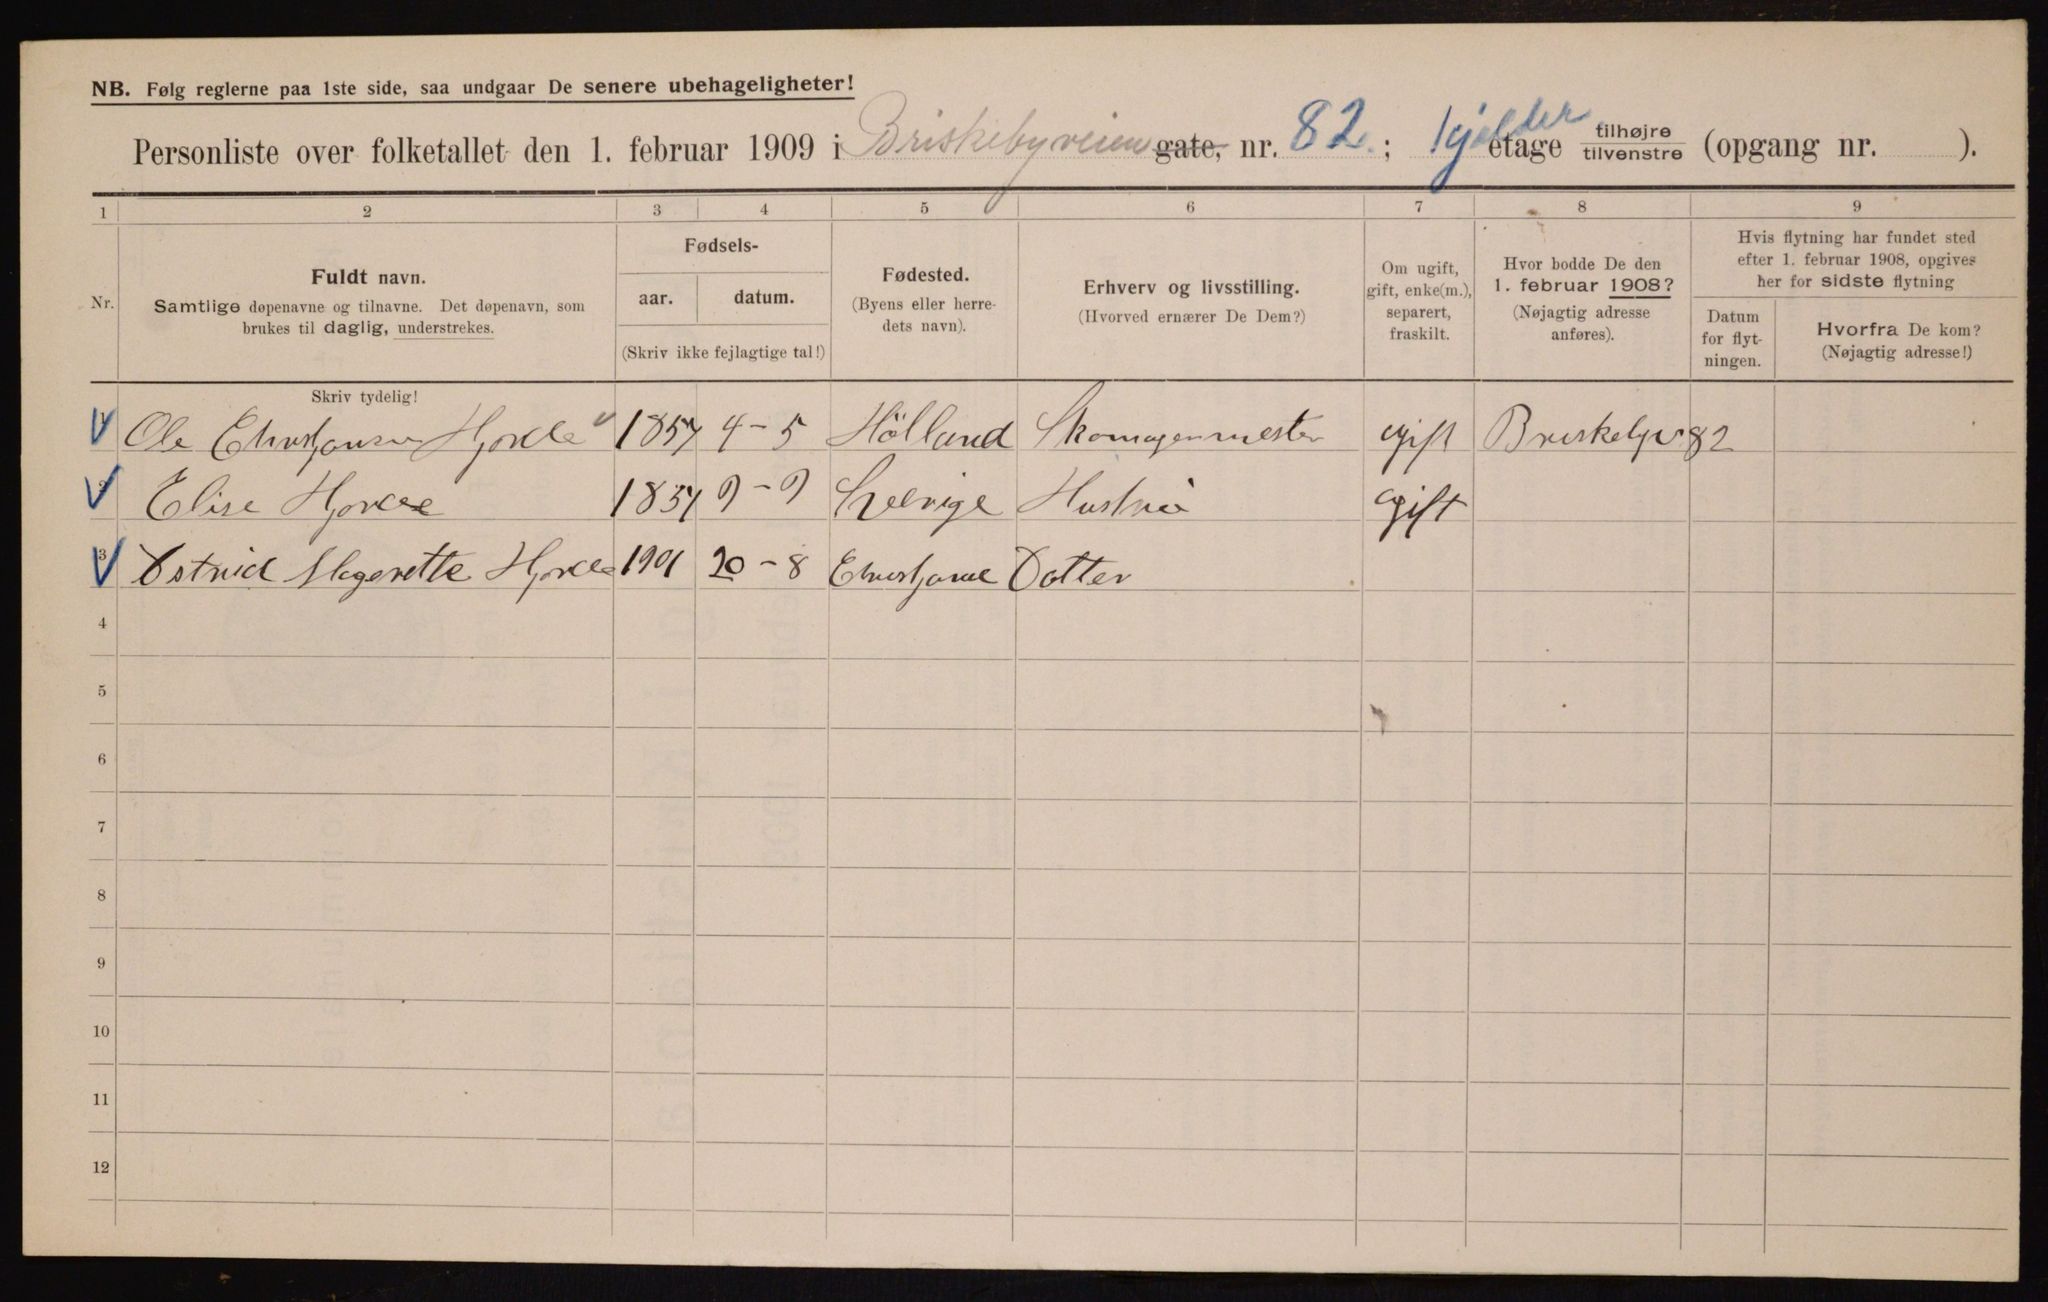 NB. Følg reglerne paa 1ste side, saa undgaar De senere ubehageligheter!
Personliste over folketallet den 1. februar 1909 i Briskebyveien gate, nr. 82.; Kjelder etage tilhøjre/tilvenstre (opgang nr. ).
1 2 3 4 5 6 7 8 9
Nr.
Fuldt navn.
Samtlige døpenavne og tilnavne. Det døpenavn, som
brukes til daglig, understrekes.
Fødsels-
aar. datum.
(Skriv ikke fejlagtige tal!)
Fødested.
(Byens eller herre-
dets navn).
Erhverv og livsstilling.
(Hvorved ernærer De Dem?)
Om ugift,
gift, enke(m.),
separert,
fraskilt.
Hvor bodde De den
1. februar 1908?
(Nøjagtig adresse
anføres).
Hvis flytning har fundet sted
efter 1. februar 1908, opgives
her for sidste flytning
Datum
for flyt-
ningen.
Hvorfra De kom?
(Nøjagtig adresse!)
Skriv tydelig!
1 Ole 4-5 Hölland Skomagermester gift 82
2 Elise 9-9 gift
3 1901 20-8 Datter
4
5
6
7
8
9
10
11
12